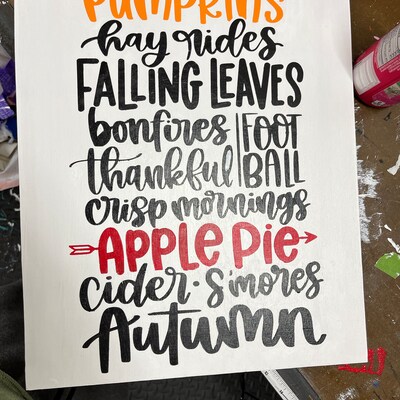 PUMPKINS
hay rides
FALLING LEAVES
bonfires
thankful
FOOT
BALL
crisp mornings
APPLE PIE
cider · s'mores
Autumn